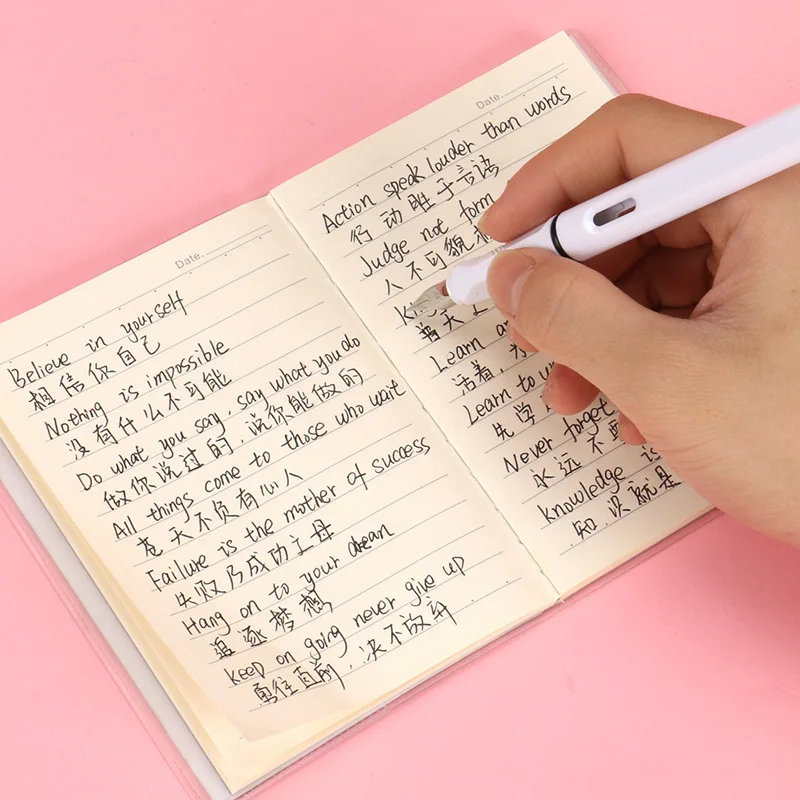 Date.
Believe in yourself
相信你自己
Nothing is impossible
没有什么不可能
Do what you say, say what you do
做你说过的,说你能做的
All things come to those who wait
苍天不负有心人
Failure is the mother of success
失败乃成功之母
Hang on to your dream
追逐梦想
keep on going never give up
勇往直前,决不放弃
Date.
Action speak louder than words
行动胜于言语
Judge not form
人不可貌
普天
Learn
活着,
Learn to
先学
Never forget
永远不要
knowledge is
知识就是